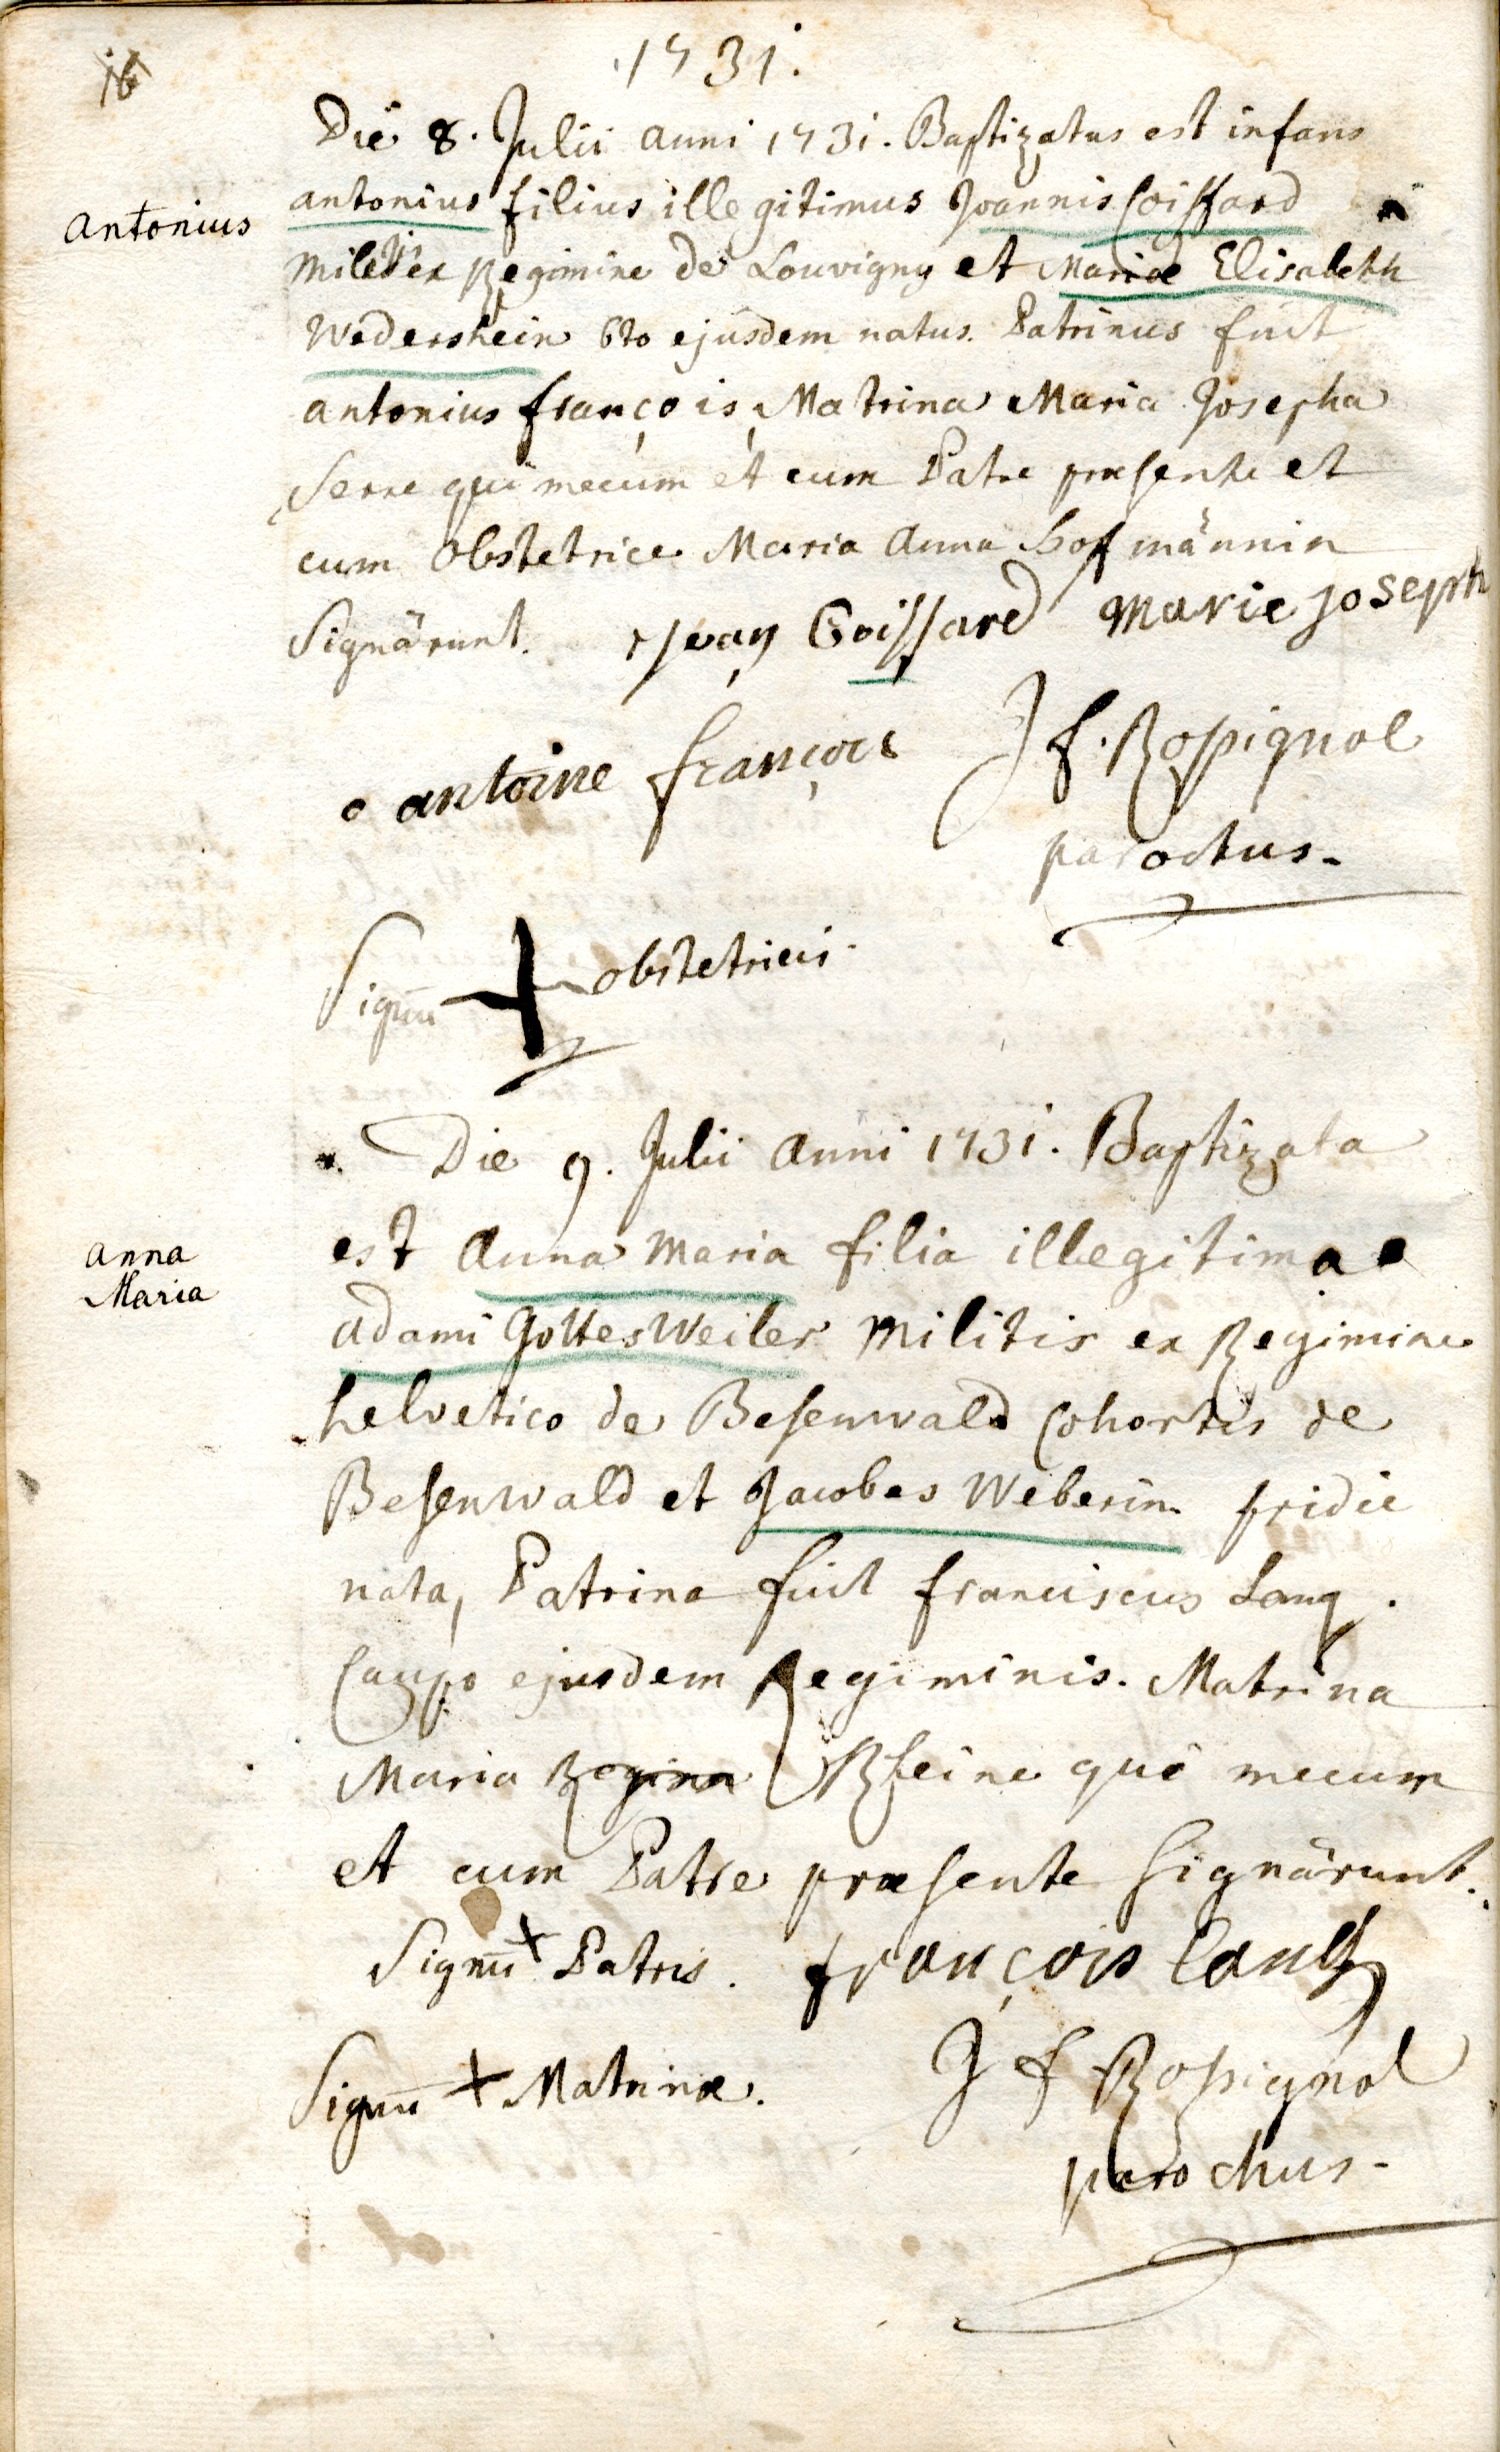 16
1731.
Die 8. Julii anni 1731. Baptizatus est infans
antonius filius illegitimus Joannis Coissard
Antonius
militis ex Regimine de Louvigny et Mariæ Elisabeth
Wedershein 6to ejusdem natus. Patrinus fuit
antonius françois, Matrina Maria Josepha
Serre qui mecum et cum Patre præsente et
cum Obstetrice Maria Anna Hofmännin
Signârunt. Jean Coissard Marie Joseph
antoine françois J f. Rospignol
parochus.
Signū + obstetricis.
Die 9. Julii Anni 1731. Baptizata
est Anna Maria filia illegitima
Anna
Maria
adami GottesWeiler militis ex Regimine
helvetico de Besenwald Cohortis de
Besenwald et Jacobes Weberin pridie
nata, Patrina fuit franciscus Lang.
Caupo ejusdem Regiminis. Matrina
Maria Regina Rheine qui mecum
et cum Patre præsente Signârunt.
Signū + Patris. françois Lang
Signū + Matrinæ. J f Rospignol
parochus.